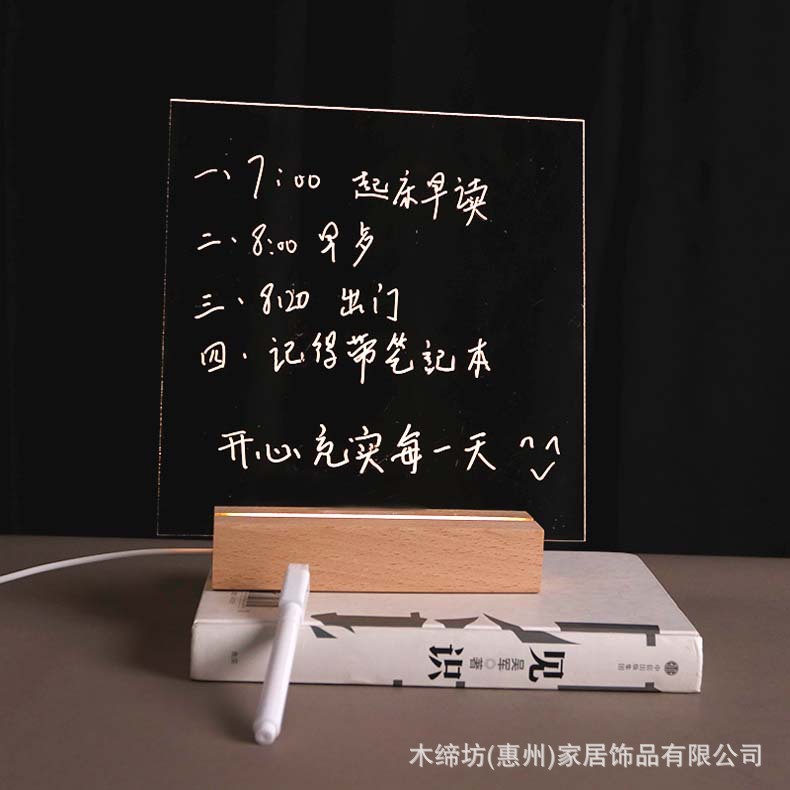 一、7:00 起床早读
二、8:00 早点
三、8:20 出门
四、记得带笔記本
开心充实每一天 ^^
见识
吴军◎著
中信出版集团
木缔坊(惠州)家居饰品有限公司